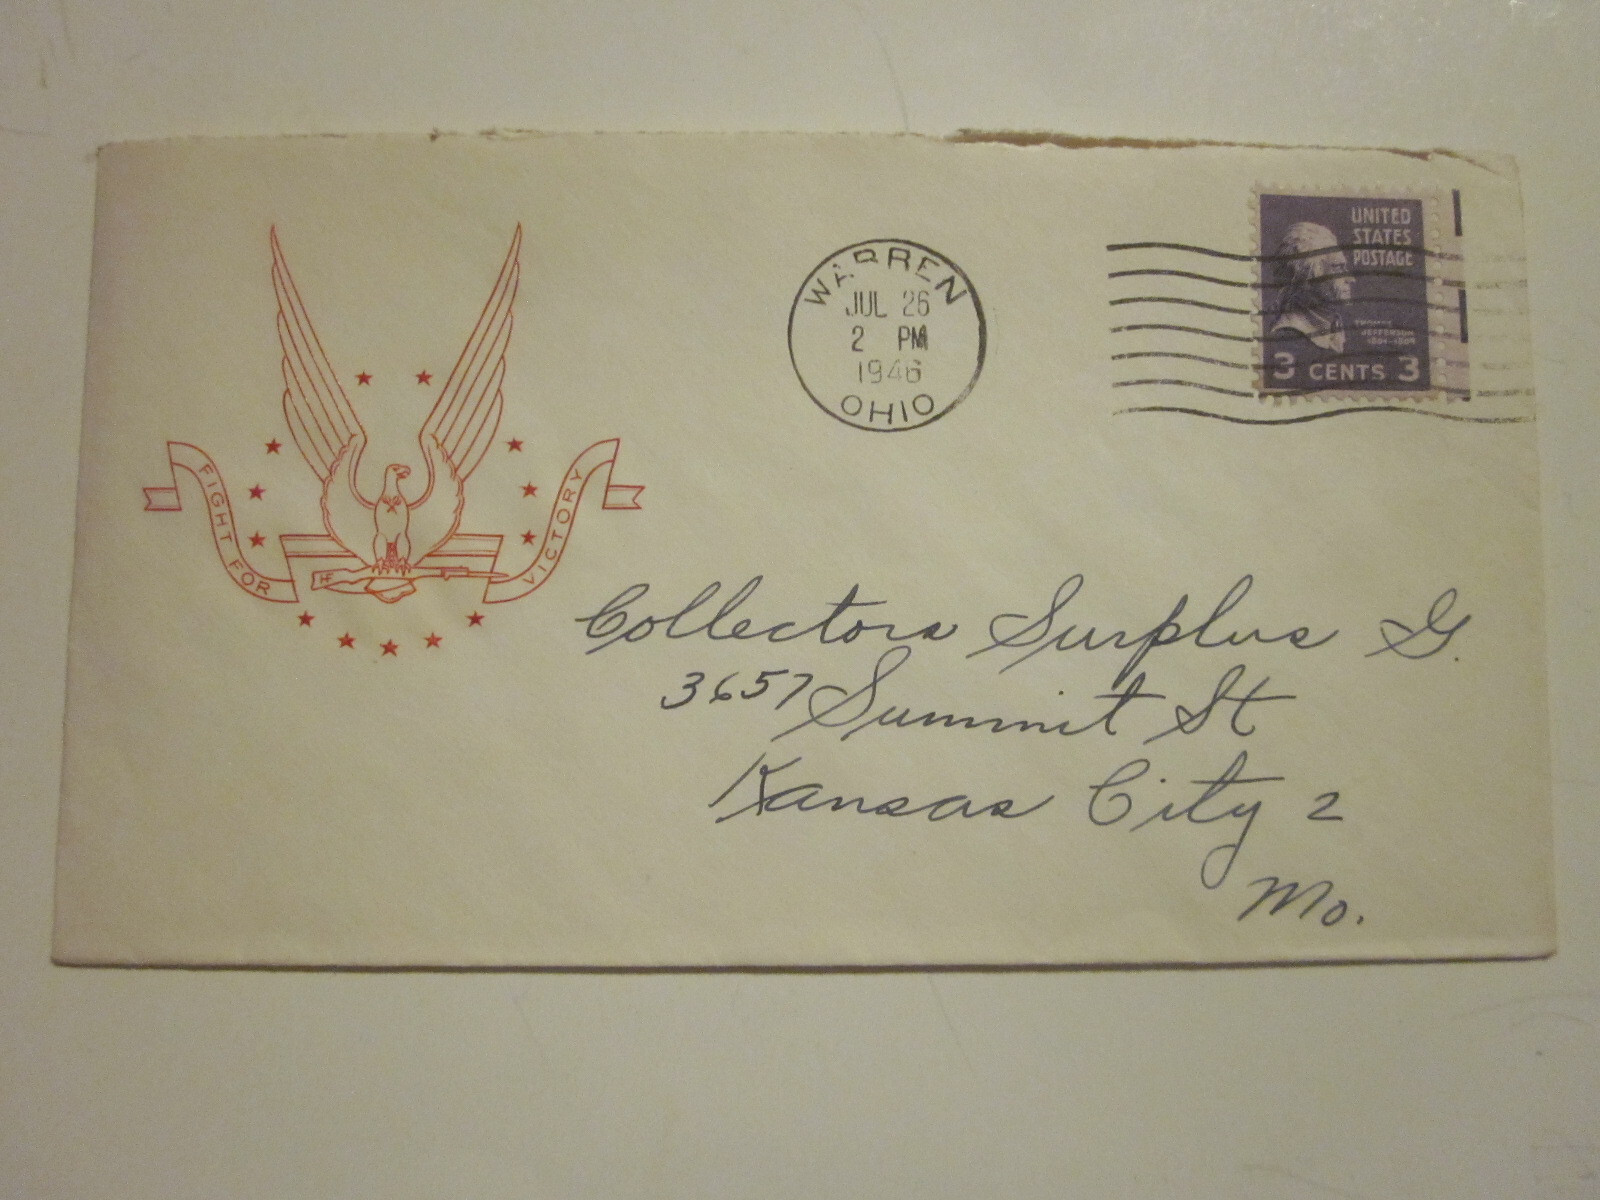 FIGHT FOR VICTORY
HF
WARREN
JUL 26
2 PM
1946
OHIO
UNITED
STATES
POSTAGE
THOMAS
JEFFERSON
1801-1809
3 CENTS 3
Collectors Surplus G.
3657 Summit St
Kansas City 2
Mo.